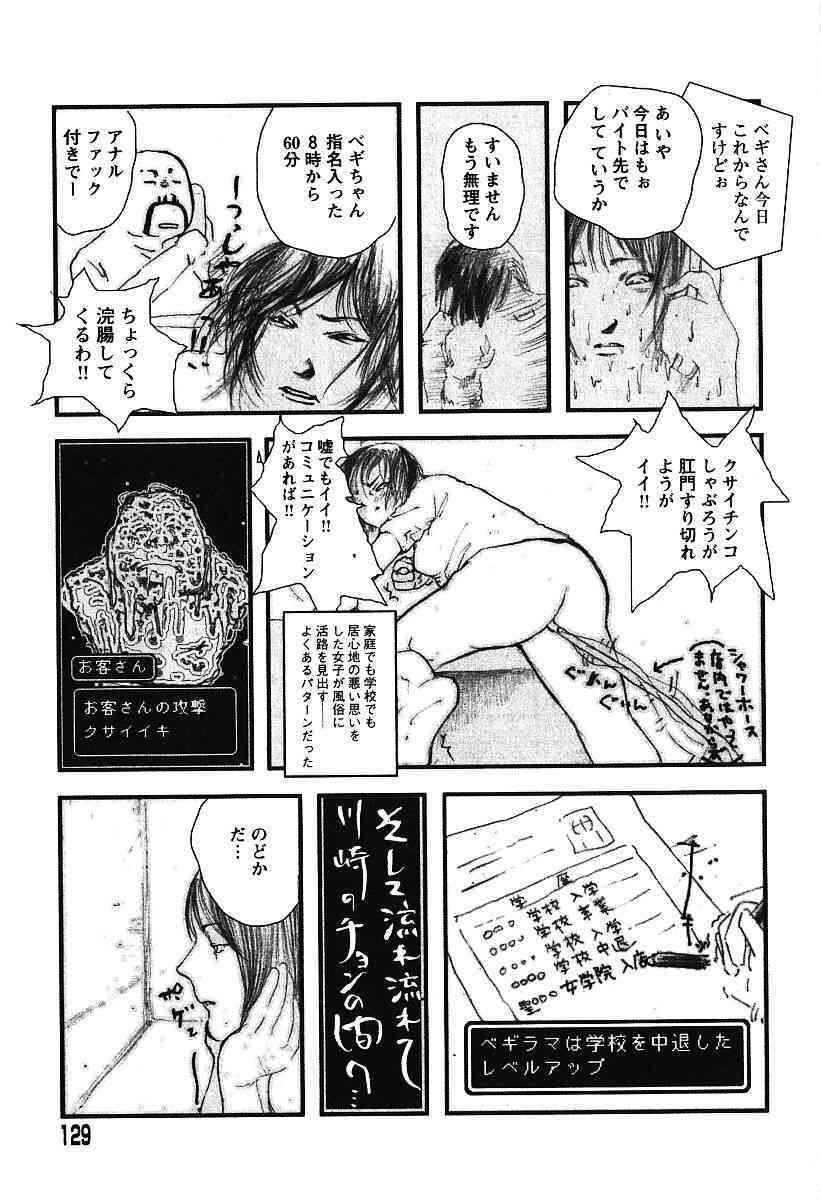 ベギさん今日
これからなんで
すけどぉ
あいや
今日はもぉ
バイト先で
して ていうか
すいません
もう無理です
ベギちゃん
指名入った
8時から
60分
アナル
ファック
付きでー
いーっしゃあ!!
ちょっくら
浣腸して
くるわ!!
クサイチンコ
しゃぶろうが
肛門すり切れ
ようが
イイ!!
嘘でもイイ!!
コミュニケーション
があれば!!
シャワーホース
(店内ではやって
ぐいん
ぐいん
家庭でも学校でも
居心地の悪い思いを
した女子が風俗に
活路を見出す――
よくあるパターンだった
お客さん
お客さんの攻撃
クサイイキ
学歴
○○○ 学校 入学
○○○ 学校 卒業
○○○○ 学校 入学
○○○○ 学校 中退
聖○○○ 女学院 入店
ベギラマは学校を中退した
レベルアップ
そして流れ流れて
川崎のチョンの間へ…
のどか
だ…
129